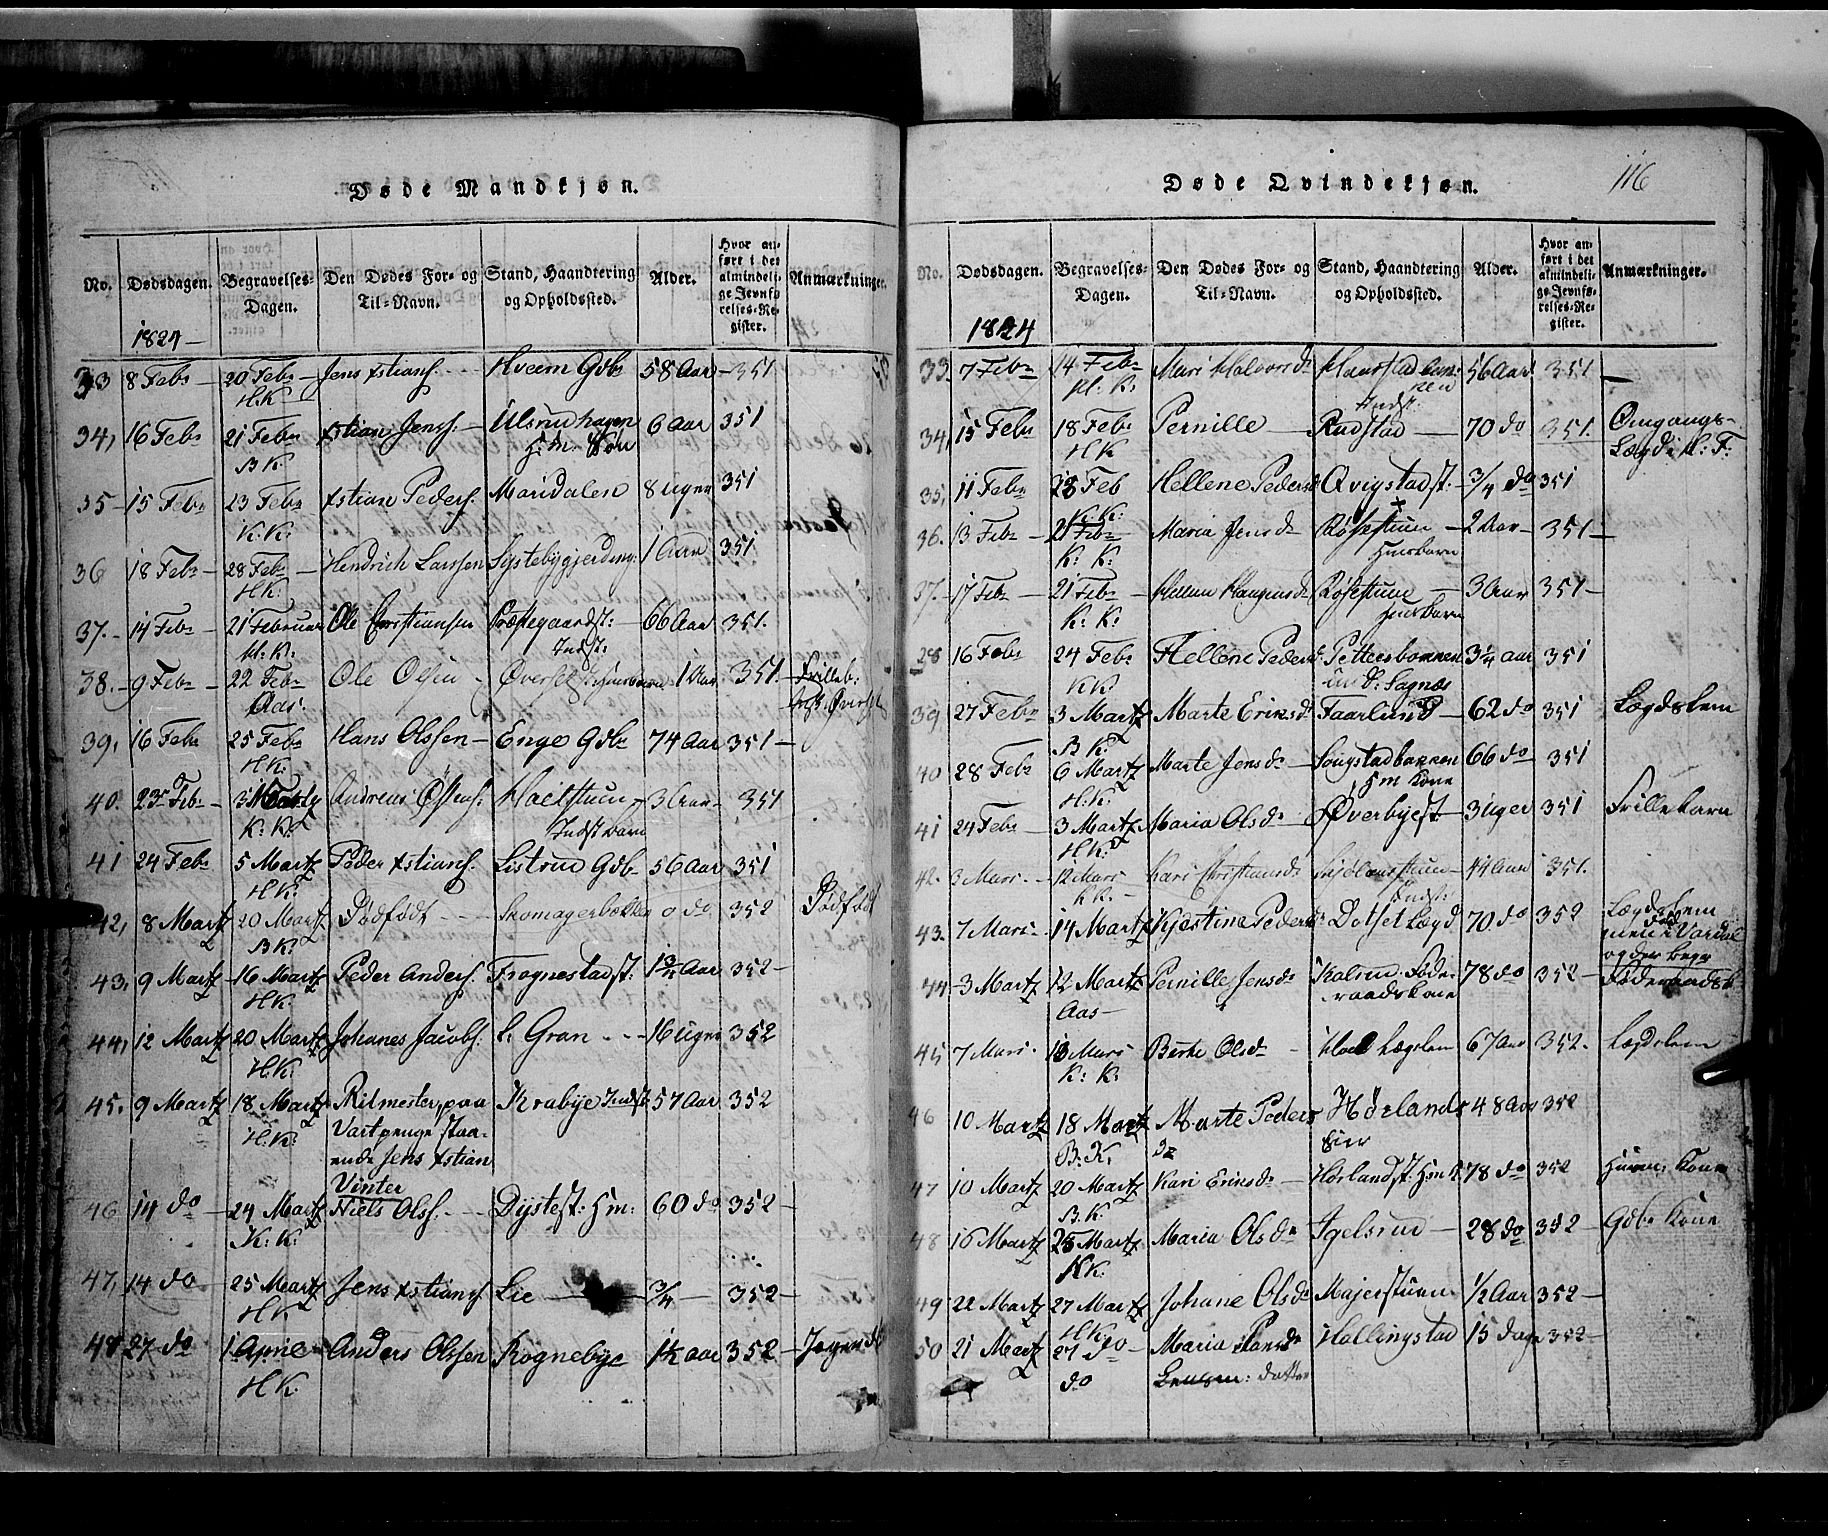 Døde Mandkjøn.
No. Dødsdagen. Begravelses-Dagen. Den Dødes For- og Til-Navn. Stand, Haandtering og Opholdssted. Alder. Hvor anført i det almindelige Jevnførelses-Register. Anmærkninger.
1824
33 8 Febr 20 Febr Jens xstians. Hveem Gdbr 58 Aar 351
H.K
34, 16 Febr 21 Febr xstian Jenss. Ulsrudhagen 6 Aar 351
B K. H:m. Søn
35 15 Febr 23 Febr xstian Peders. Maridalen 8 Uger 351
K. K.
36 18 Febr 28 Febr Hendrich Larssen 1 Aar 351
H K.
37. 14 Febr 21 Februar Ole Christiansen Præstegaardst: 66 Aar 351.
H. K. Indst:
38. 9 Febr 22 Febr Ole Olsen 1 Aar 351. Frilleb:
Aas.
39, 16 Febr 25 Febr Hans Olssen Enge Gdbr 74 Aar 351
H K.
40. 23 Febr 3 Martz Andreas 3 Aar 351
K. K. Indst barn
41 24 Febr 5 Martz Peder xstians. Listrud Gdbr 56 Aar 351
H K.
42, 8 Martz 20 Martz Dødfødt Skomagerbakken 0 do 352 Dødfødt
B K.
43, 9 Martz 16 Martz Peder Anders. Frognestadst: 1 3/4 Aar 352
H K.
44, 12 Martz 20 Martz Johanes Jacobs. l: Gran 16 Uger 352
H.K.
45. 9 Martz 18 Martz Ritmester, paa Krabye Indst 57 Aar 352
H.K. Vartpenge staa-
ende Jens xstian
Vinter
46 14 do 24 Martz Niels Olss. Dystest: Hm: 60 do 352
K. K.
47, 14 do 25 Martz Jens xstians. Lie 3/4 352
H K
48 27 do 1 April Anders Olssen Rognebye 1 1/2 aar 352
H K.
Døde Qvindekjøn.
116
No. Dødsdagen. Begravelses-Dagen. Den Dødes For- og Til-Navn. Stand, Haandtering og Opholdssted. Alder. Hvor anført i det almindelige Jevnførelses-Register. Anmærkninger.
1824
33. 7 Febr 14 Febr Mari Halvorsd 56 Aar 351
H. K.
Indst:
34, 15 Febr 18 Febr Pernille Rudstad 70 do 351. Omgangs-
H K Lægd:
35, 11 Febr 28 Feb Hellene Pedersd Qvigstadst: 3/4 do 351
K. K.
36. 13 Febr 21 Febr Maria Jensd Røsestuen 2 Aar 351
K. K. Huusbarn
37. 17 Febr 21 Febr Røsestuen 3 Aar 351
K. K. Huusbarn
38 16 Febr 24 Febr Hellene Pedersd Pettersbakken 3 1/4 aar 351
K K. und: Sagnæs
39 27 Febr 3 Martz Marte Eriksd Faarlund 62 do 351 Lægdslem
B K
40 28 Febr 6 Martz Marte Jensd Sougstadbakken 66 do 351
H.K. Hm Kone
41 24 Febr 3 Martz Maria Olsd Øverbyest: 3 Uger 351 Frillebarn
H K.
42. 3 Mars 12 Mars Kari Christiansd 44 Aar 351.
K K. Indst:
43. 7 Mars 14 Martz Kjestine Pedersdr Dotset Lægd 70 do 352 Lægdslem
død i Vardal
og der begr
44. 3 Martz 12 Martz Pernille Jensd Kalrud Føde- 78 do 352 Føderaadsk
Aas raadskone
45 7 Mars 10 Mars Berte Olsd Lægslem 67 Aar 352. Lægdslem
K. K.
46 10 Martz 18 Martz Marte Peders Hørlands- 48 Aar 352
B. K. Dr eier
47 10 Martz 20 Martz Kari Eriksd Hørlandst: Hm 78 do 352 Kone
B.K.
48 16 Martz 25 Martz Maria Olsdr Igelsrud 28 do 352 Gdbr Kone
K K.
49 22 Martz 27 Martz Johane Olsd Majerstuen 1/2 Aar 352
H K.
50 21 Martz 27 do Maria Hansd Hallingstad 15 dage 352
do datter